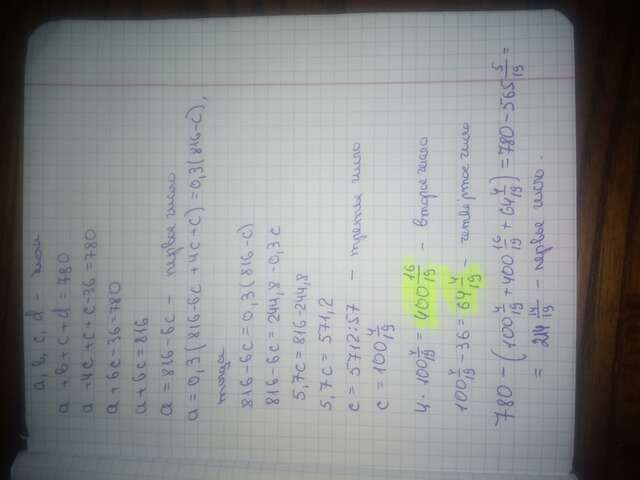 a, b, c, d –
a + b + c + d = 780
a + 4c + c + c - 36 = 780
a + 6c - 36 = 780
a + 6c = 816
a = 816 - 6c - первое число
a = 0,3 (816 - 6c + 4c + c) = 0,3 (816 - c),
тогда
816 - 6c = 0,3 (816 - c)
816 - 6c = 244,8 - 0,3c
5,7c = 816 - 244,8
5,7c = 571,2
c = 5712:57 - третье число
c = 100 4/19
4 · 100 4/19 = 400 16/19 - второе число
100 4/19 - 36 = 64 4/19 - четвёртое число
780 - (100 4/19 + 400 16/19 + 64 4/19) = 780 - 565 5/19 =
= 214 14/19 - первое число.